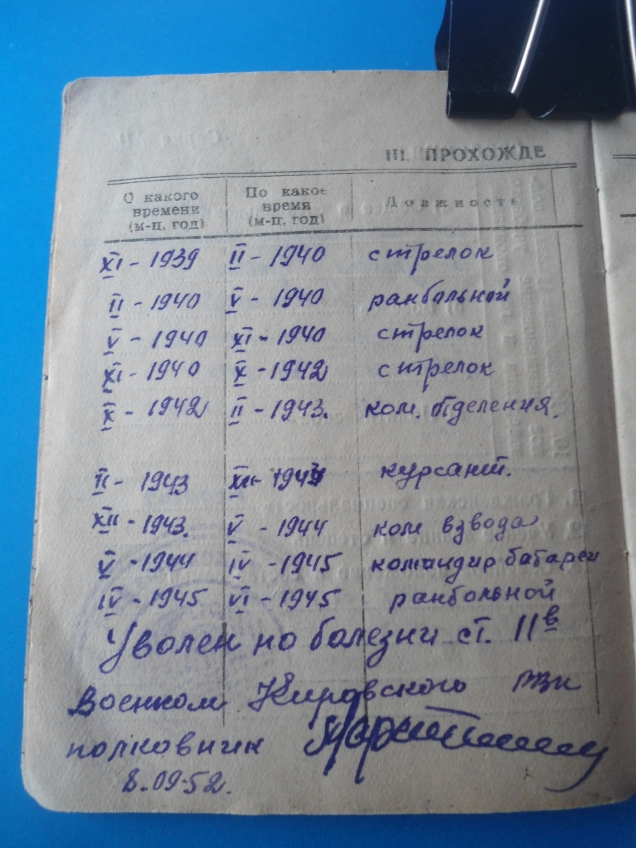 III. ПРОХОЖДЕ
С какого времени (м-ц, год) По какое время (м-ц, год) Должность
XI - 1939 II - 1940 стрелок
II - 1940 V - 1940 ранбольной
V - 1940 XI - 1940 стрелок
XI - 1940 X - 1942 стрелок
X - 1942 II - 1943. ком. отделения.
II - 1943 XII - 1943 курсант.
XII - 1943. V - 1944 ком взвода
V - 1944 IV - 1945 командир батареи
IV - 1945 VI - 1945 ранбольной
Уволен по болезни ст. 11в
Военком Кировского РВК
полковник
8.09.52.